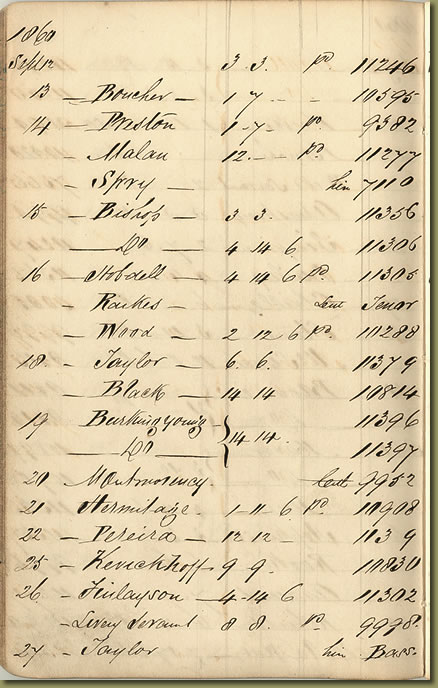 1860
Sept 12 3 3. pd 11246
13 — Boucher — 1 7 - - 10595
14 — Preston 1 - 7 - pd. 9382
— Malan 12. — pd. 11277
— Spry — hire 7110
15 — Bishop — 3 3. 11356
— Do — 4 14 6 11306
16 — Stobdell — 4 14 6 pd. 11305
— Raikes — Lent Tenor
— Wood — 2 12 6 pd. 10288
18. — Taylor — 6. 6. 11379
— Black — 14 14 10814
19 11396
— Do — } 14 14. 11397
20 Montmorency. Lent 9952
21 — Hermitage. 1 - 11 - 6 pd 10908
22 — Pereira — 12 12 - 113 9
25 — 9 9. 10830
26 — Finlayson — 4 - 14 6 11302
— Servant 8 8. pd. 9998.
27 — Taylor hire Bass.